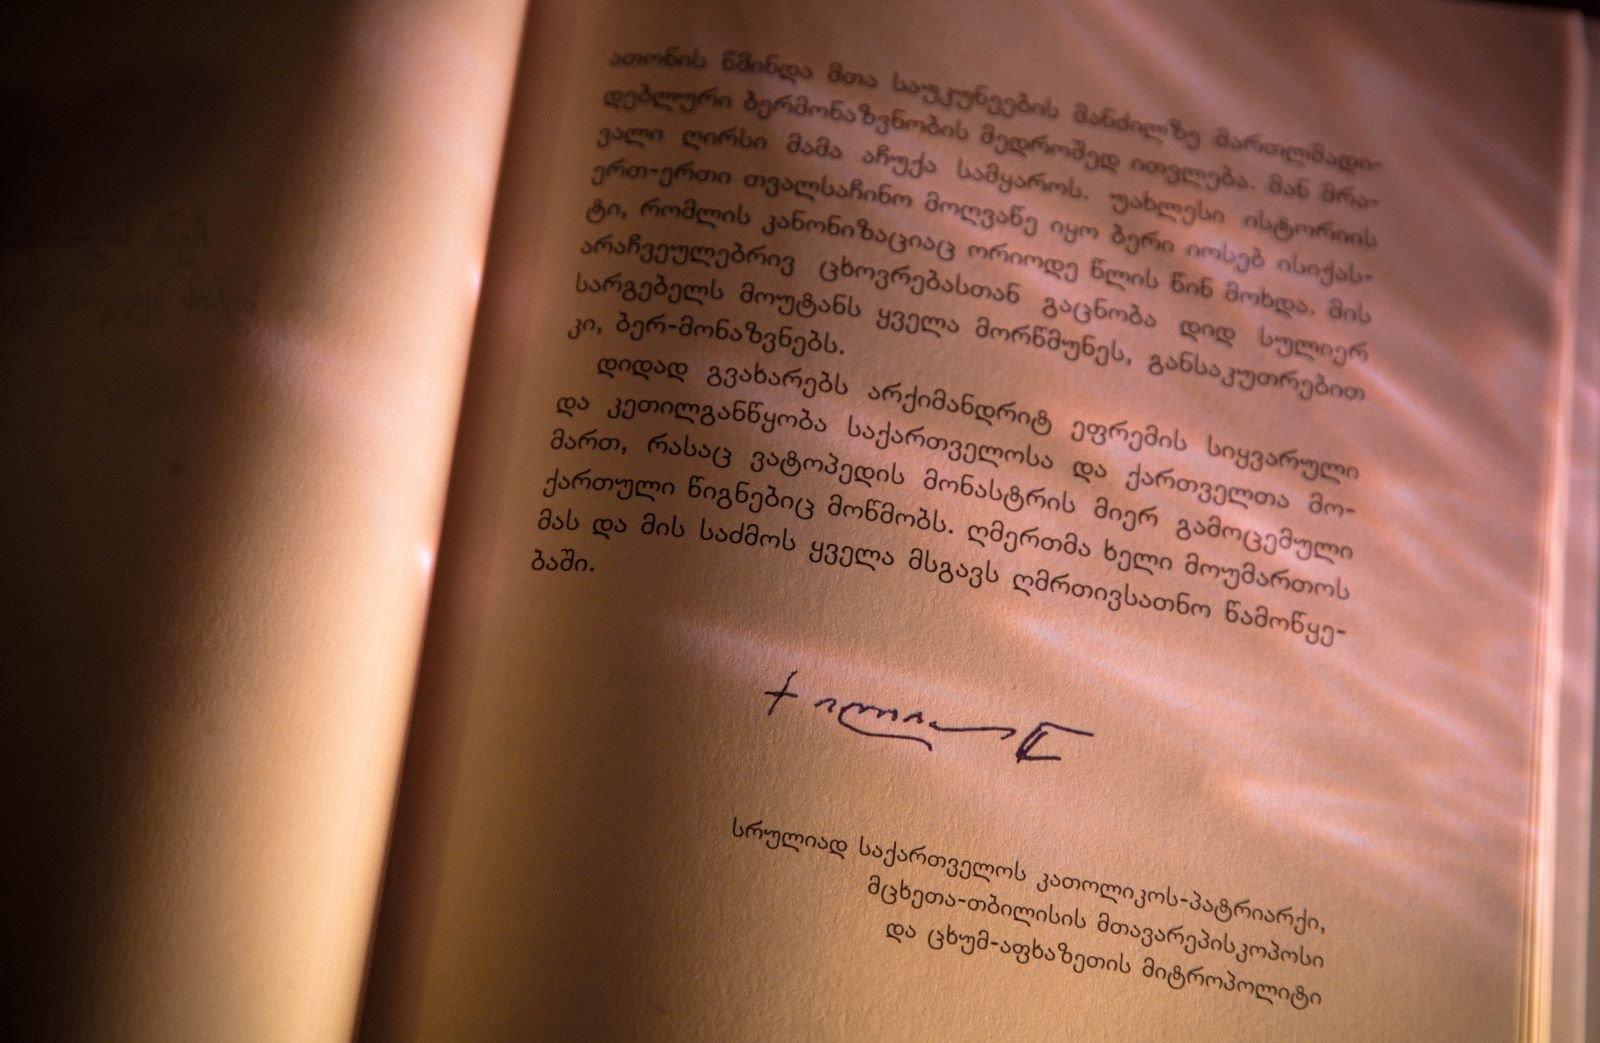 ათონის წმინდა მთა საუკუნეების მანძილზე მართლმადი-
დებლური ბერმონაზვნობის მედროშედ ითვლება. მან მრა-
ვალი ღირსი მამა აჩუქა სამყაროს. უახლესი ისტორიის
ერთ-ერთი თვალსაჩინო მოღვაწე იყო ბერი იოსებ ისიქას-
ტი, რომლის კანონიზაციაც ორიოდე წლის წინ მოხდა. მის
არაჩვეულებრივ ცხოვრებასთან გაცნობა დიდ სულიერ
სარგებელს მოუტანს ყველა მორწმუნეს, განსაკუთრებით
კი, ბერ-მონაზვნებს.
დიდად გვახარებს არქიმანდრიტ ეფრემის სიყვარული
და კეთილგანწყობა საქართველოსა და ქართველთა მო-
მართ, რასაც ვატოპედის მონასტრის მიერ გამოცემული
ქართული წიგნებიც მოწმობს. ღმერთმა ხელი მოუმართოს
მას და მის საძმოს ყველა მსგავს ღმრთივსათნო წამოწყე-
ბაში.
სრულიად საქართველოს კათოლიკოს-პატრიარქი,
მცხეთა-თბილისის მთავარეპისკოპოსი
და ცხუმ-აფხაზეთის მიტროპოლიტი